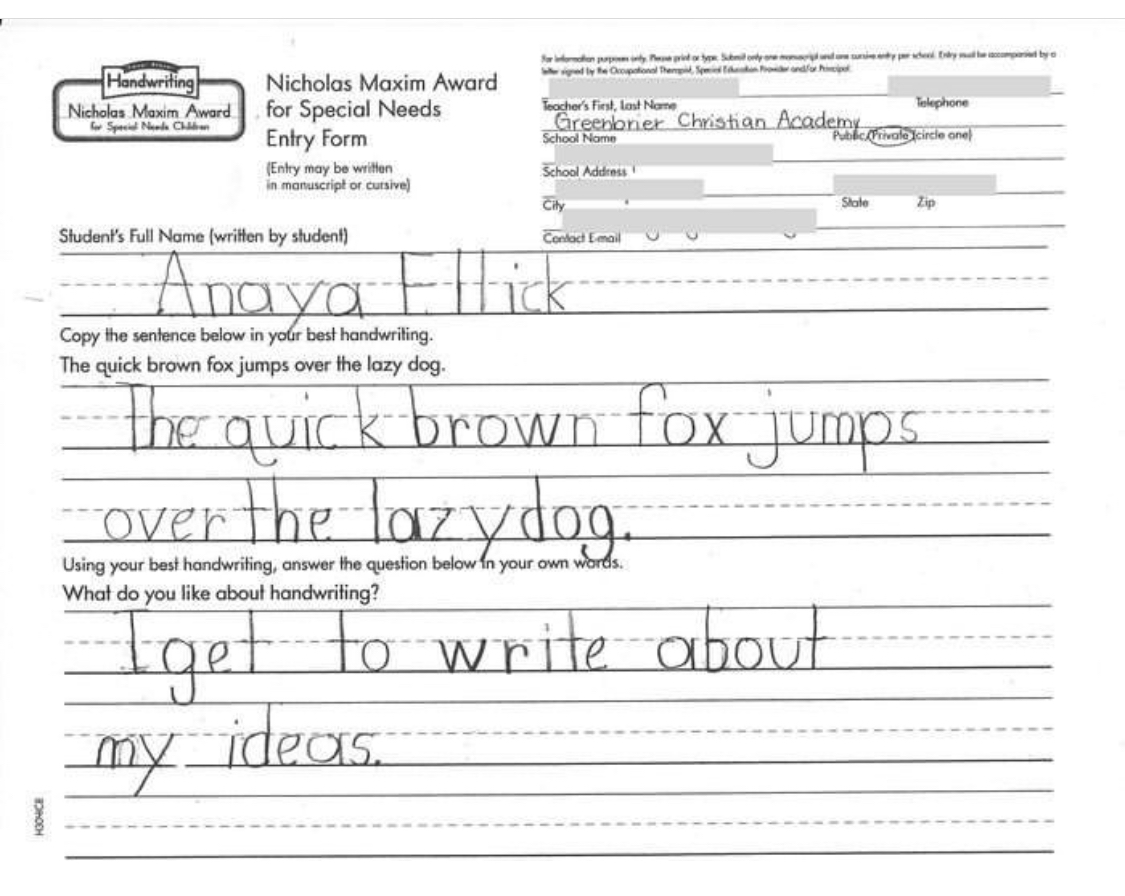 Handwriting
Nicholas Maxim Award
for Special Needs Children
Nicholas Maxim Award
for Special Needs
Entry Form
(Entry may be written
in manuscript or cursive)
For information purposes only. Please print or type. Submit only one manuscript and one cursive entry per school. Entry must be accompanied by a
letter signed by the Occupational Therapist, Special Education Provider and/or Principal.
Teacher's First, Last Name Telephone
Greenbrier Christian Academy
School Name Public/Private (circle one)
School Address
City State Zip
Contact E-mail
Student's Full Name (written by student)
Anaya Ellick
Copy the sentence below in your best handwriting.
The quick brown fox jumps over the lazy dog.
The quick brown fox jumps
over the lazy dog.
Using your best handwriting, answer the question below in your own words.
What do you like about handwriting?
I get to write about
my ideas.
H304CE